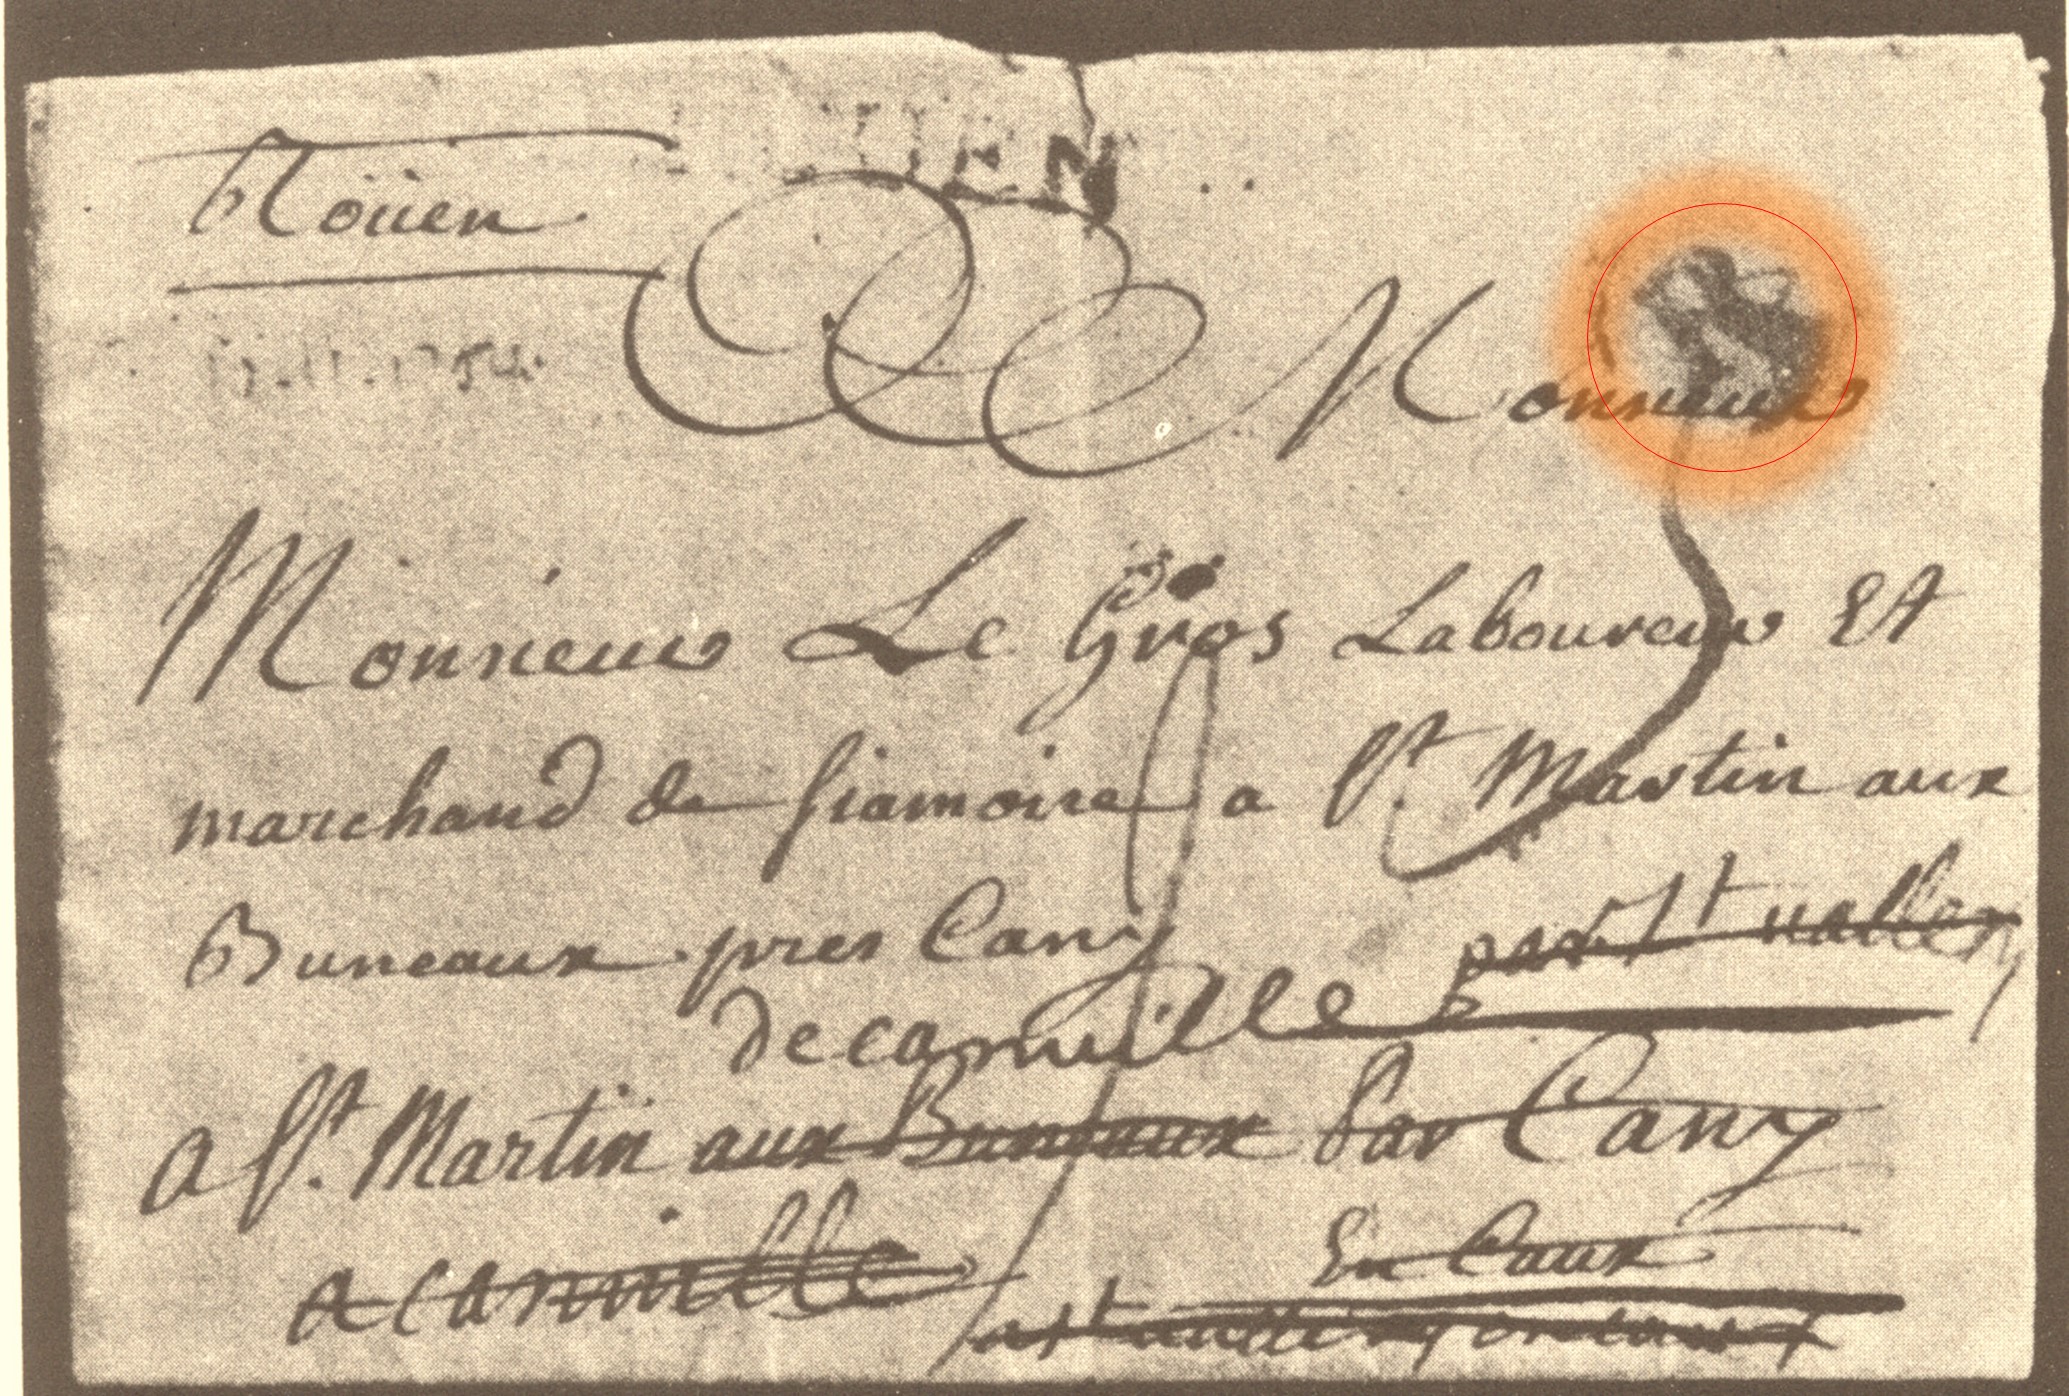 IEN
Roüen
Monsieur
Monsieur Le Gros Laboureur Et
marchand de siamoise a St. Martin aux
Buneaux pres Cany par St vallery
de canville
a St. Martin aux Buneaux Par Cany
a canville En Caux